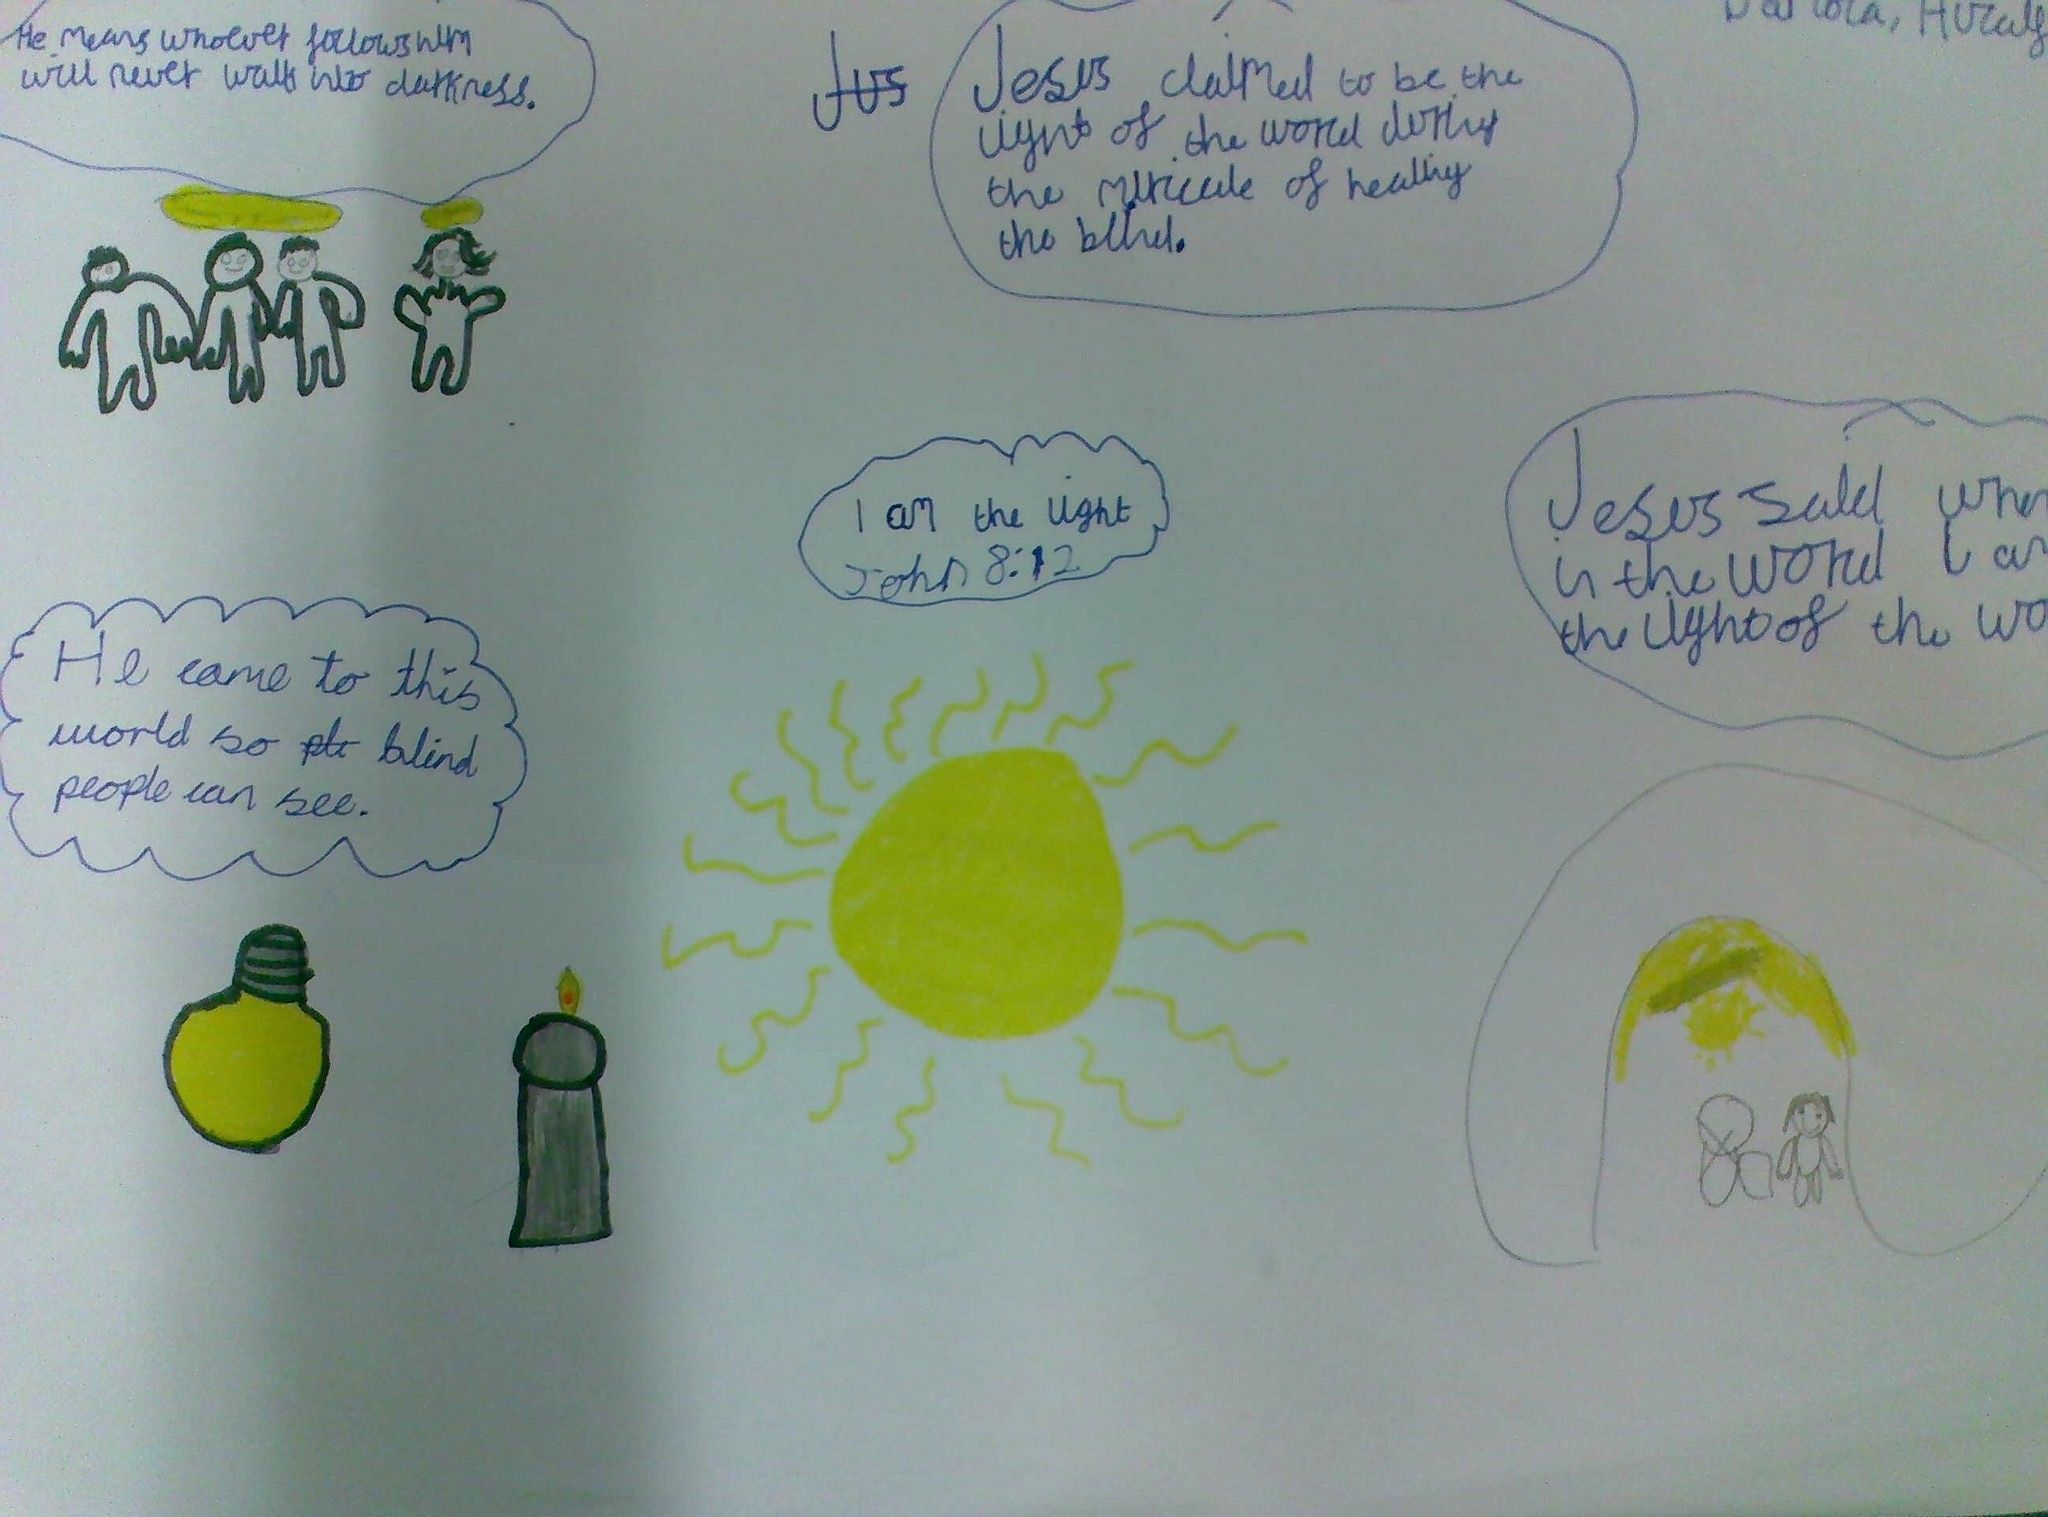 He means whoever follows him
will never walk into darkness.
Jus
Jesus claimed to be the
light of the world during
the miricale of healing
the blind.
I am the light
John 8:12
Jesus said
in the world I am
the light of the
He came to this
world so blind
people can see.